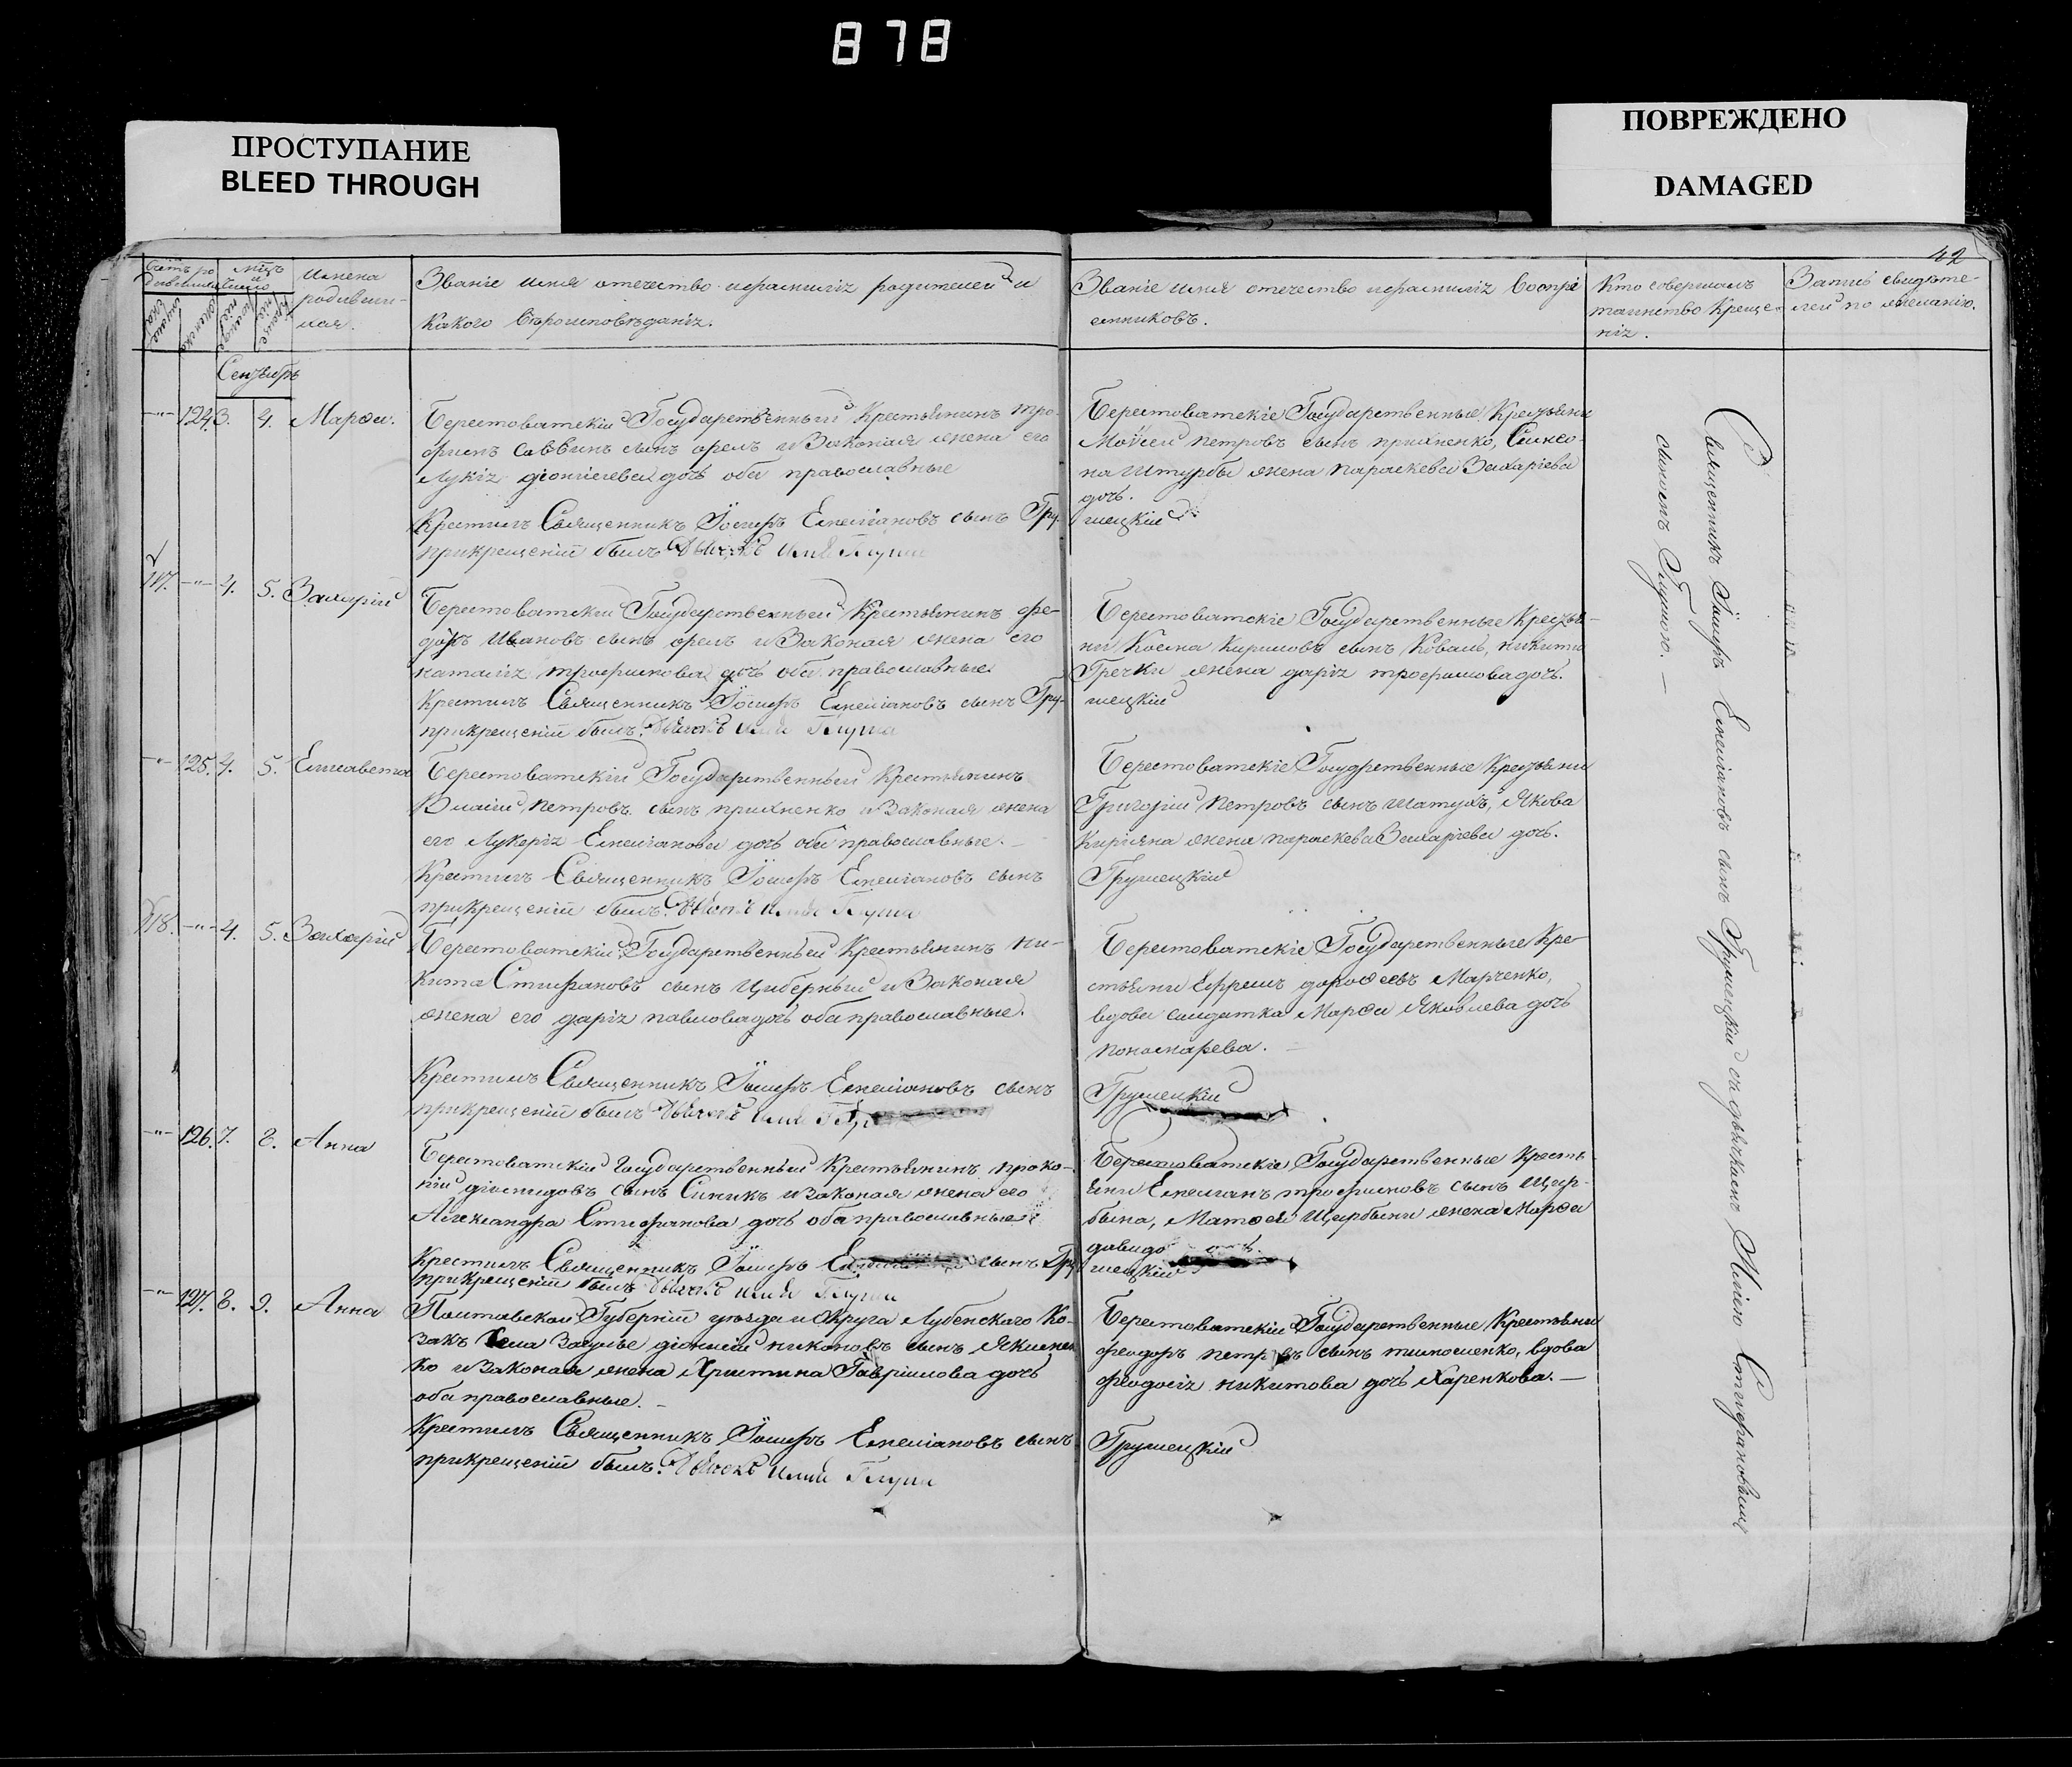 878
ПРОСТУПАНИЕ
BLEED THROUGH
ПОВРЕЖДЕНО
DAMAGED
42
Счетъ ро
дившихся
Мѣсяцъ
и
имена
родивши-
хся.
Званіе имя отечество ифамилія родителей и
какого вѣроисповѣданія.
Званіе имя отечество ифамилія воспрі
емниковъ.
Кто совершалъ
таинство Креще-
нія.
Запись свидѣте-
лей по желанію.
Сентябрь
124. 3. 4. Марѳа.
Берестоватскій Государственный Крестьянинъ Тро-
фимъ Саввинъ сынъ орелъ и Законая жена его
Лукія діонисіева дочь оба православные
Крестилъ Священникъ Іосифъ Емеліановъ сынъ Гру-
прикрещеніи былъ Дьячекъ Илія Глущ
Берестоватскіе Государственные Крестьяни
Мойсей петровъ сынъ прихненко, Симео-
на Штурбы жена параскева Захаріева
дочь.
шецкій
117. 4. 5. Захарій
Берестоватскій Государственный Крестьянинъ фе-
доръ Ивановъ сынъ орелъ и Законая жена его
наталія трофимова дочь оба православные
Крестилъ Священникъ Іосифъ Емеліановъ сынъ Гру-
прикрещеніи былъ Дьячекъ Илія Глущ
Берестоватскіе Государственные Крестья-
ни Косма Кириловъ сынъ Коваль, никиты
Гречки жена дарія трофимова дочь.
шецкій
125. 4. 5. Елисавета
Берестоватскій Государственный Крестьянинъ
Власій петровъ сынъ прихненко и Законая жена
его Лукерія Емеліанова дочь оба православные.
Крестилъ Священникъ Іосифъ Емеліановъ сынъ
прикрещеніи былъ Дьячекъ Илія Глущ
Берестоватскіе Госудрственные Крестьяни
Григорій петровъ сынъ Шатухъ, Якова
Киріяна жена параскева Захаріева дочь.
Грушецкій
118. 4. 5. Захарій
Берестоватскій Государственный Крестьянинъ ни-
кита Стифановъ сынъ Циберный и Законая
жена его дарія павлова дочь оба православные.
Крестилъ Священникъ Іосифъ Емеліановъ сынъ
прикрещеніи былъ Дьячекъ Илія
Берестоватскіе Государственные Кре-
стьяни Ефремъ дороѳеевъ Марченко,
вдова салдатка Марѳа Яковлева дочь
пономарева.
Грушецкій
126. 7. 8. Анна
Берестоватскій Государственный Крестьянинъ проко-
пій діомидовъ сынъ Синикъ и законая жена его
Александра Стифанова дочь оба православные
Крестилъ Священникъ Іосифъ сынъ Гру
прикрещеніи былъ Дьячекъ Илія Глущ
Берестоватскіе Государственные Кресть-
яни Емеліанъ трофимовъ сынъ Щер-
бина, Матѳея Щербины жена Марѳа
давидо
шецкій
127. 8. 9. Анна
Полтавской Губерніи уѣзда и Округа Лубенскаго Ко-
закъ Села Засулье діонисій никоновъ сынъ Якимен
ко и Законая жена Христина Гавріилова дочь
оба православные.
Крестилъ Священникъ Іосифъ Емеліановъ сынъ
прикрещеніи былъ Дьячекъ Илія Глущ
Берестоватскіе Государственные Крестьяни
феодоръ петровъ сынъ тимошенко, вдова
феодосія никитова дочь Харенкова.
Грушецкій
Священникъ Іосифъ Емеліановъ сынъ Грушецкій съ дьячкомъ Иліею Стифановымъ
сыномъ Глущою.